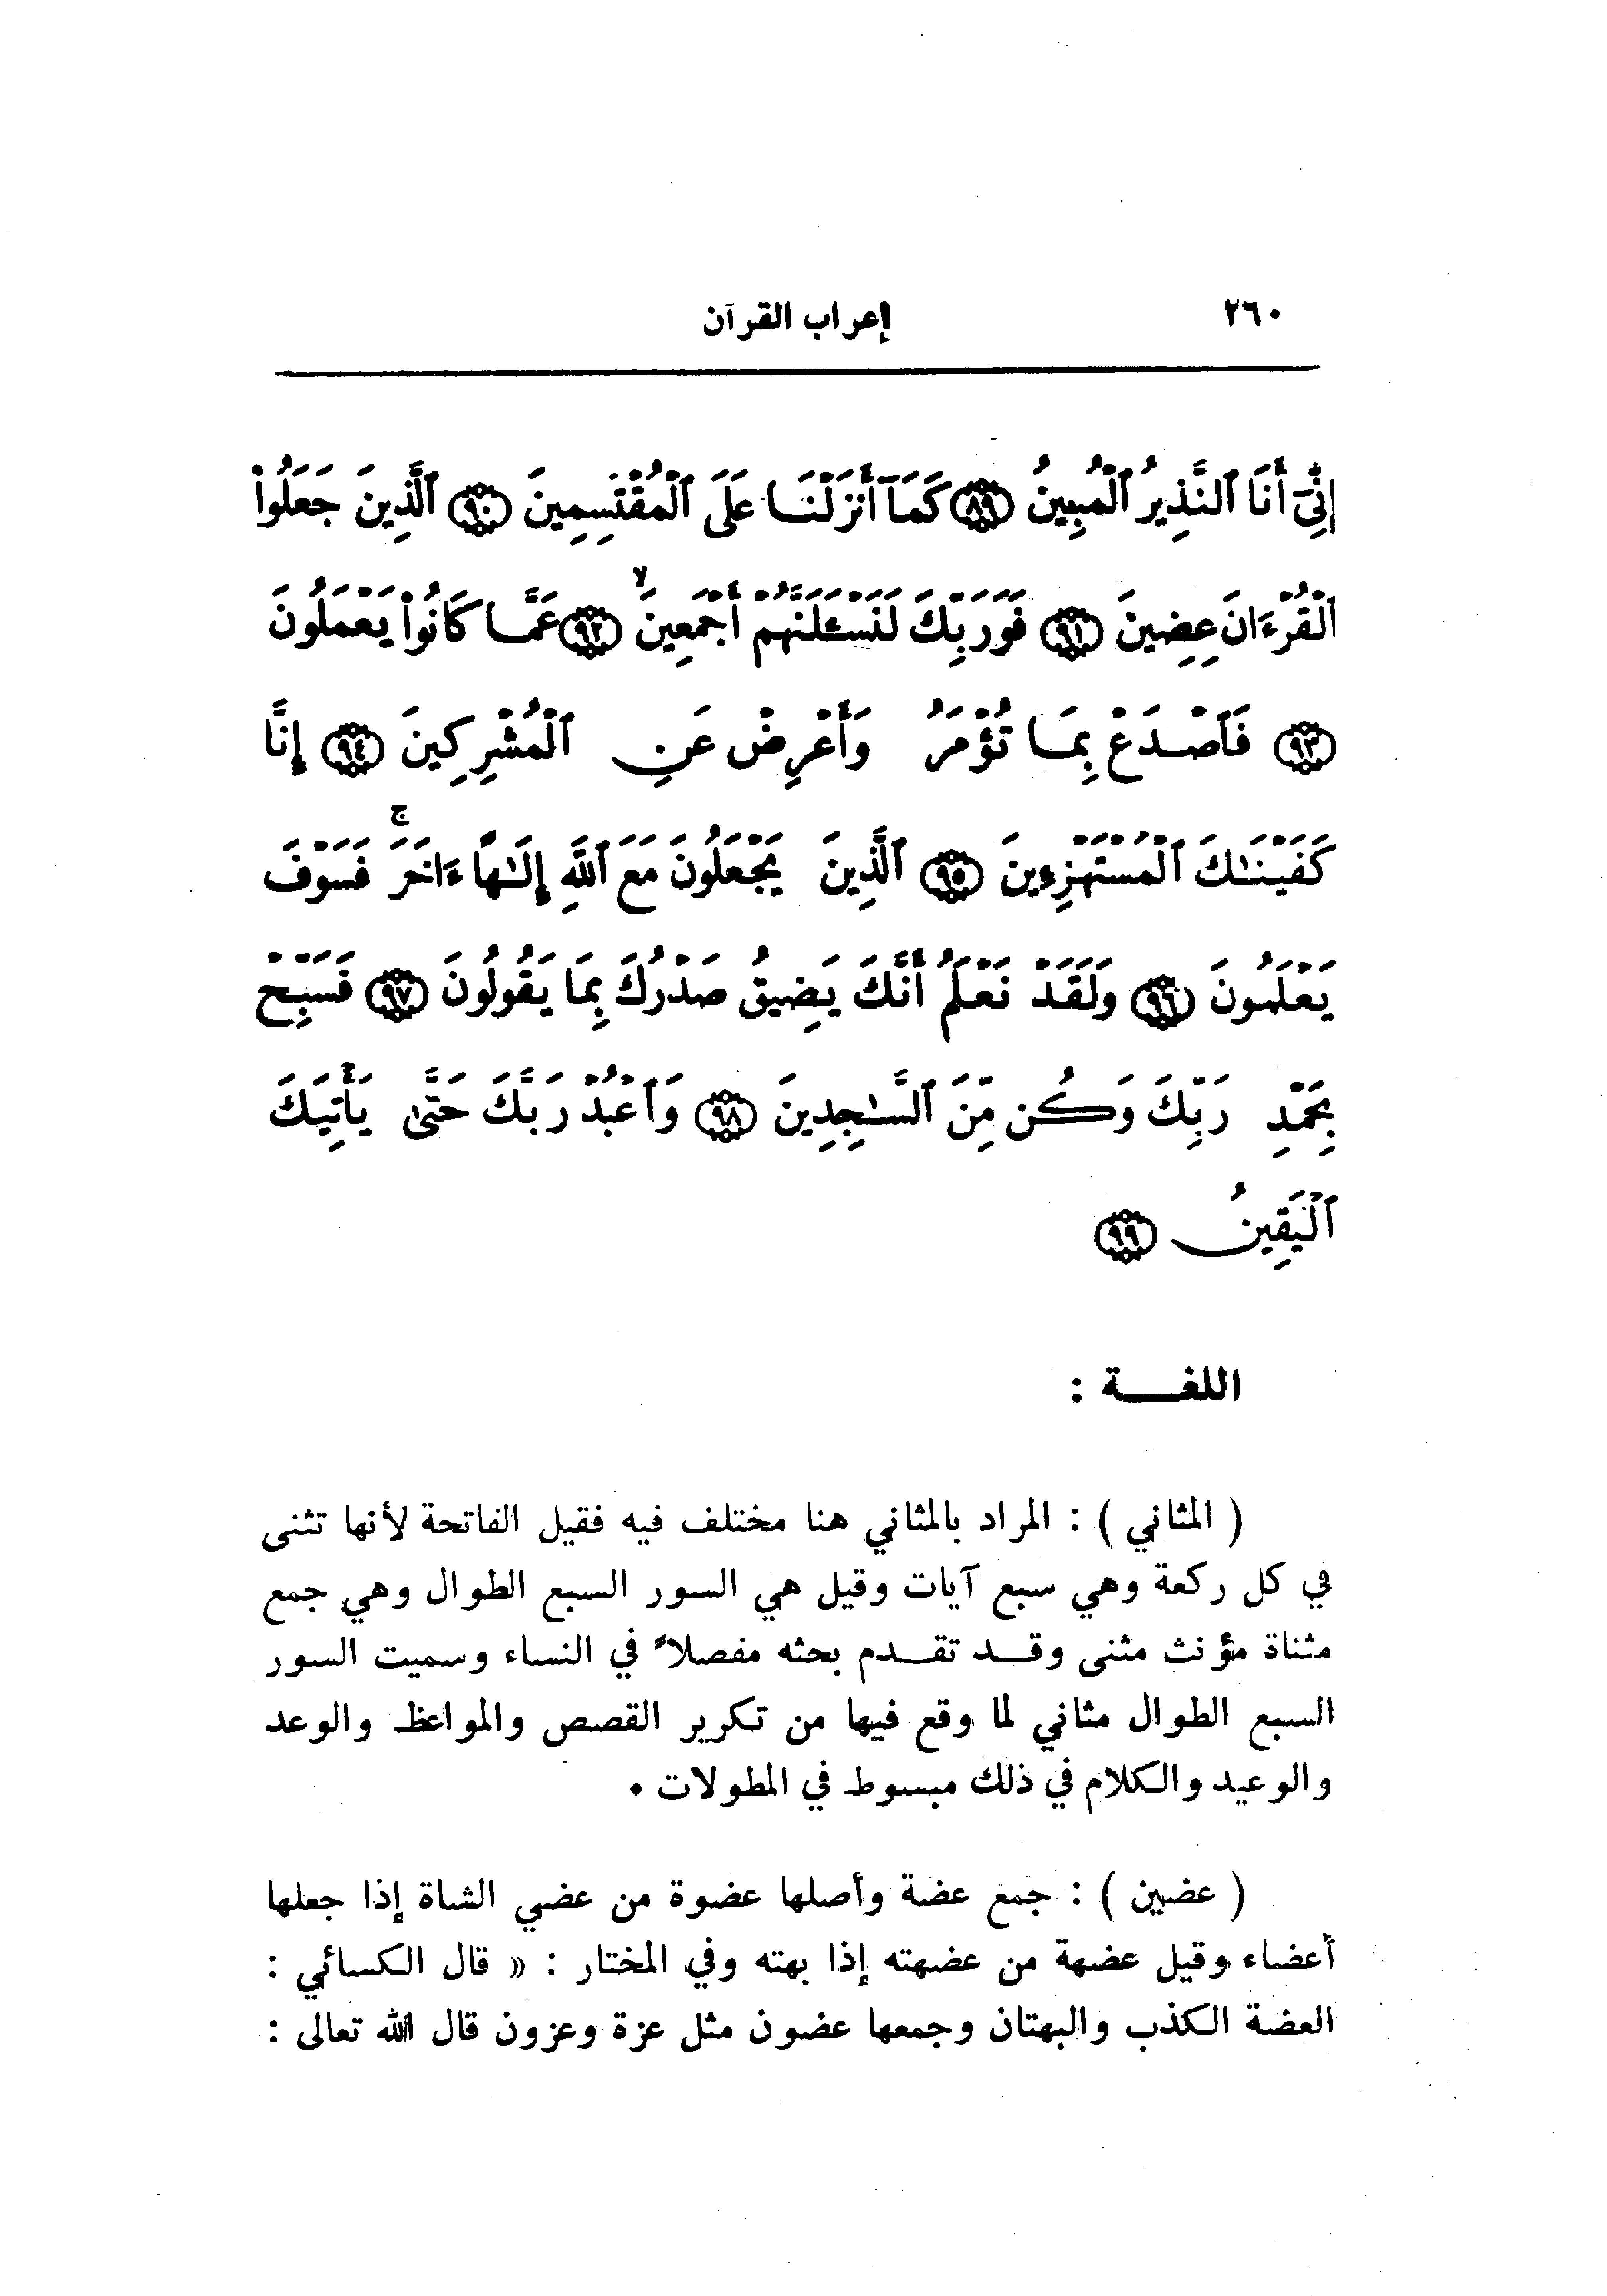 ٢٦٠ إعراب القرآن
إِنِّىٓ أَنَا ٱلنَّذِيرُ ٱلْمُبِينُ ﴿٨٩﴾ كَمَآ أَنزَلْنَا عَلَى ٱلْمُقْتَسِمِينَ ﴿٩٠﴾ ٱلَّذِينَ جَعَلُوا۟
ٱلْقُرْءَانَ عِضِينَ ﴿٩١﴾ فَوَرَبِّكَ لَنَسْـَٔلَنَّهُمْ أَجْمَعِينَ ۙ ﴿٩٢﴾ عَمَّا كَانُوا۟ يَعْمَلُونَ
﴿٩٣﴾ فَٱصْدَعْ بِمَا تُؤْمَرُ وَأَعْرِضْ عَنِ ٱلْمُشْرِكِينَ ﴿٩٤﴾ إِنَّا
كَفَيْنَـٰكَ ٱلْمُسْتَهْزِءِينَ ﴿٩٥﴾ ٱلَّذِينَ يَجْعَلُونَ مَعَ ٱللَّهِ إِلَـٰهًا ءَاخَرَ ۚ فَسَوْفَ
يَعْلَمُونَ ﴿٩٦﴾ وَلَقَدْ نَعْلَمُ أَنَّكَ يَضِيقُ صَدْرُكَ بِمَا يَقُولُونَ ﴿٩٧﴾ فَسَبِّحْ
بِحَمْدِ رَبِّكَ وَكُن مِّنَ ٱلسَّـٰجِدِينَ ﴿٩٨﴾ وَٱعْبُدْ رَبَّكَ حَتَّىٰ يَأْتِيَكَ
ٱلْيَقِينُ ﴿٩٩﴾
اللغـــة :
( المثاني ) : المراد بالمثاني هنا مختلف فيه فقيل الفاتحة لأنها تثنى
في كل ركعة وهي سبع آيات وقيل هي السور السبع الطوال وهي جمع
مثناة مؤنث مثنى وقد تقدم بحثه مفصلاً في النساء وسميت السور
السبع الطوال مثاني لما وقع فيها من تكرير القصص والمواعظ والوعد
والوعيد والكلام في ذلك مبسوط في المطولات .
( عضين ) : جمع عضة وأصلها عضوة من عضي الشاة إذا جعلها
أعضاء وقيل عضهة من عضهته إذا بهته وفي المختار : « قال الكسائي :
العضة الكذب والبهتان وجمعها عضون مثل عزة وعزون قال الله تعالى :